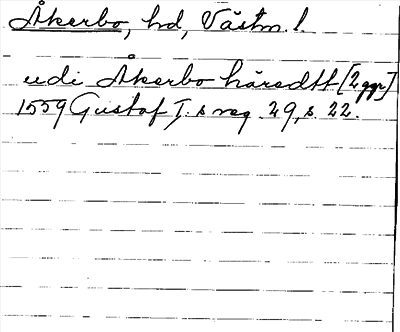 Åkerbo, hd, Västm. l.
udi Åkerbo häredtt [2 ggr]
1559 Gustaf I. s reg. 29, s. 22.